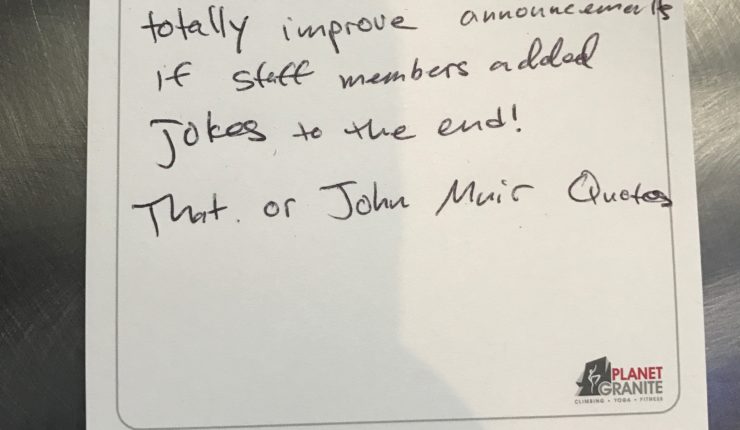 totally improve announcements
if staff members added
Jokes to the end!
That. or John Muir Quotes
PLANET
GRANITE
CLIMBING • YOGA • FITNESS